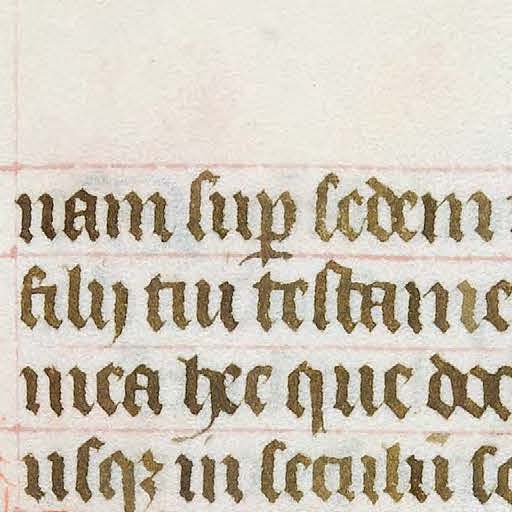 uam sup sedem
filij tui testame
mea hec que doc
usqz in seculū se